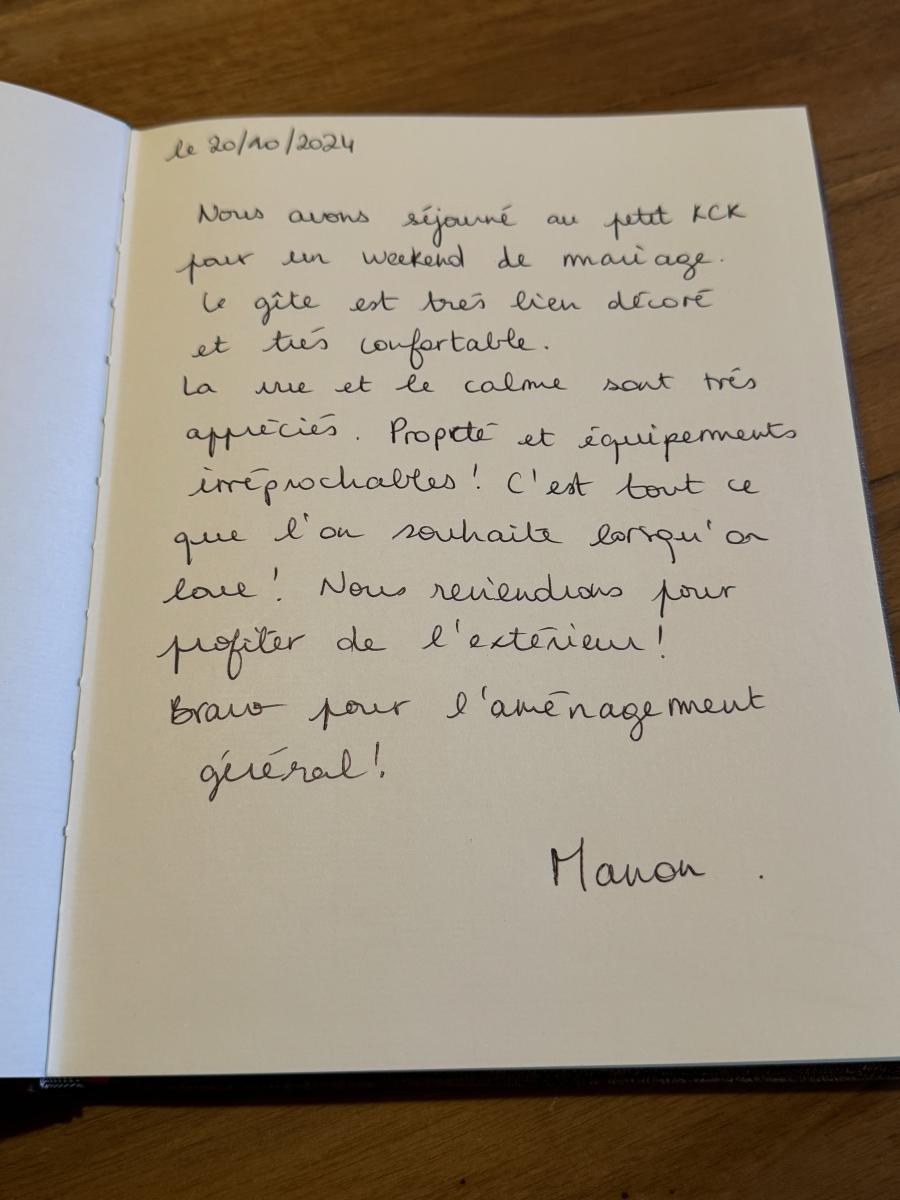 le 20/10/2024
Nous avons séjourné au petit KCK
pour un weekend de mariage.
Le gîte est très bien décoré
et très confortable.
La vue et le calme sont très
appréciés. Propreté et équipements
irréprochables ! C'est tout ce
que l'on souhaite lorsqu'on
loue ! Nous reviendrons pour
profiter de l'extérieur !
Bravo pour l'aménagement
général !
Manon.